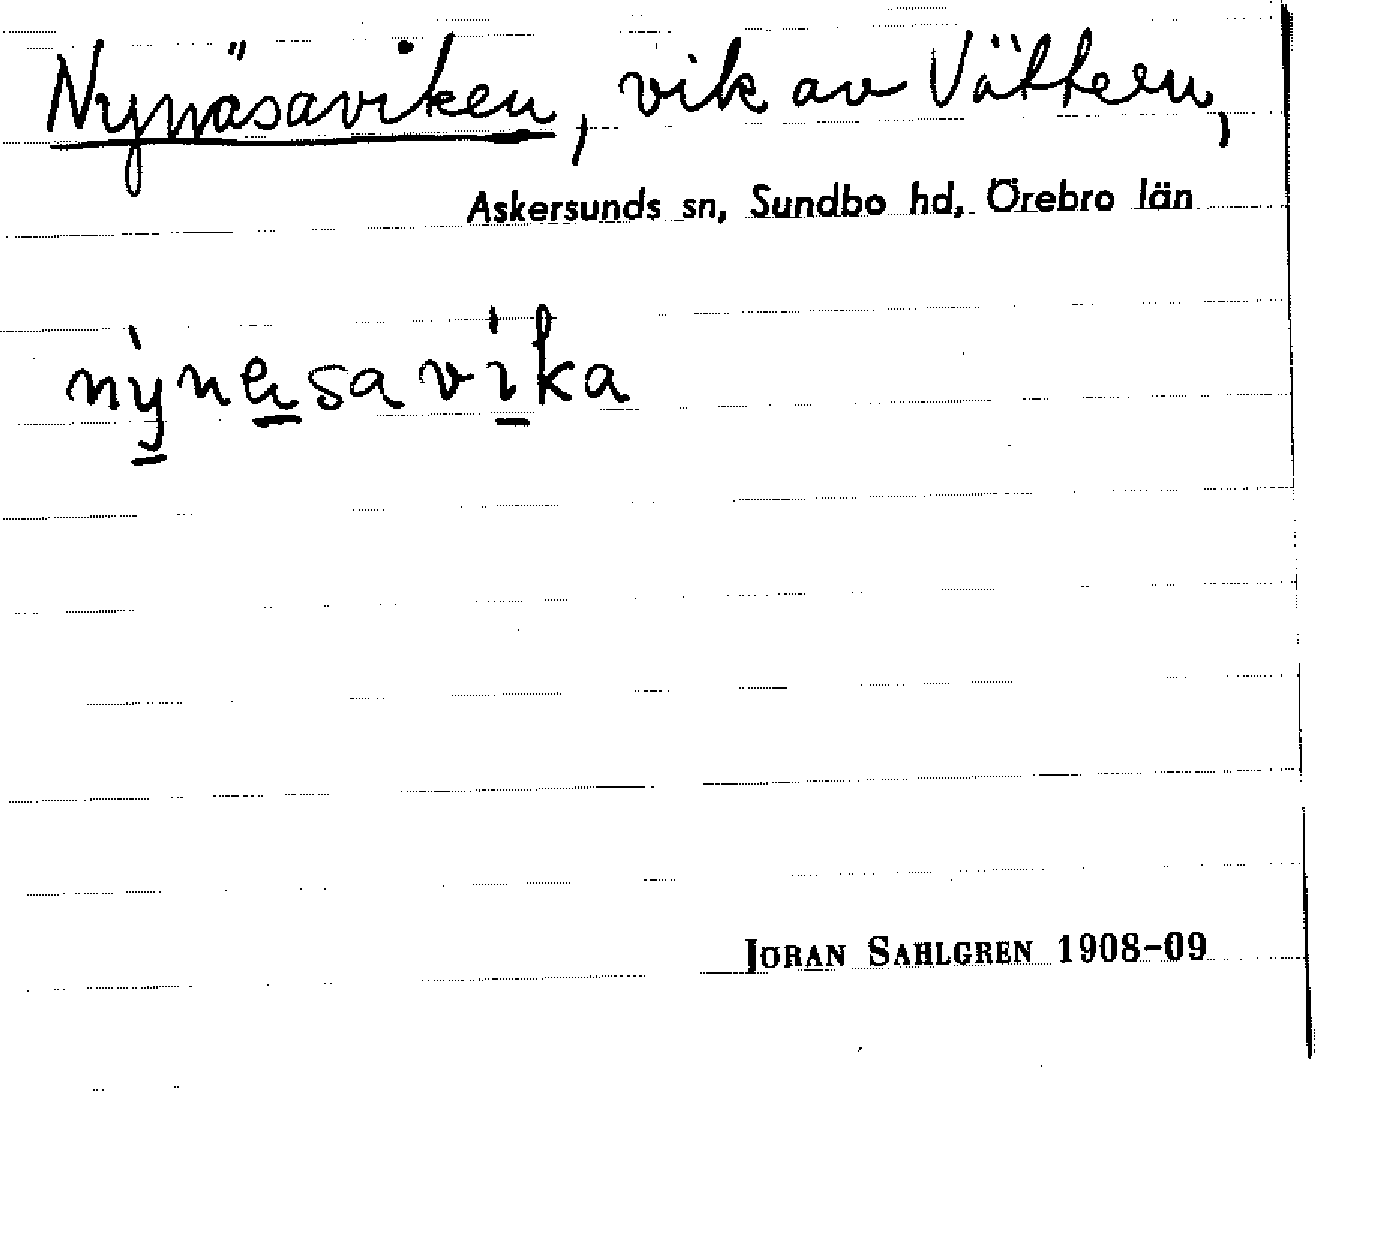 Nynäsaviken, vik av Vättern,
Askersunds sn, Sundbo hd, Örebro län
nỳnæsavika
JÖRAN SAHLGREN 1908-09